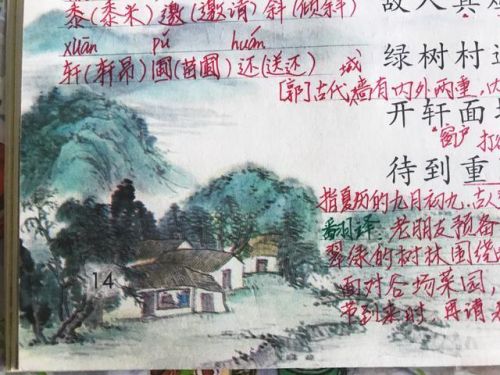 黍(黍米) 邀(邀请) 斜(倾斜)
xuān pǔ huán
轩(轩昂) 圃(苗圃) 还(送还)
故人具
绿树村
城
[郭]古代墙有内外两重,
开轩面
窗户 打
待到重
指夏历的九月初九,古人
翻译:老朋友预备
翠绿的树林围绕
面对谷场菜园,
等到来时,再请
14